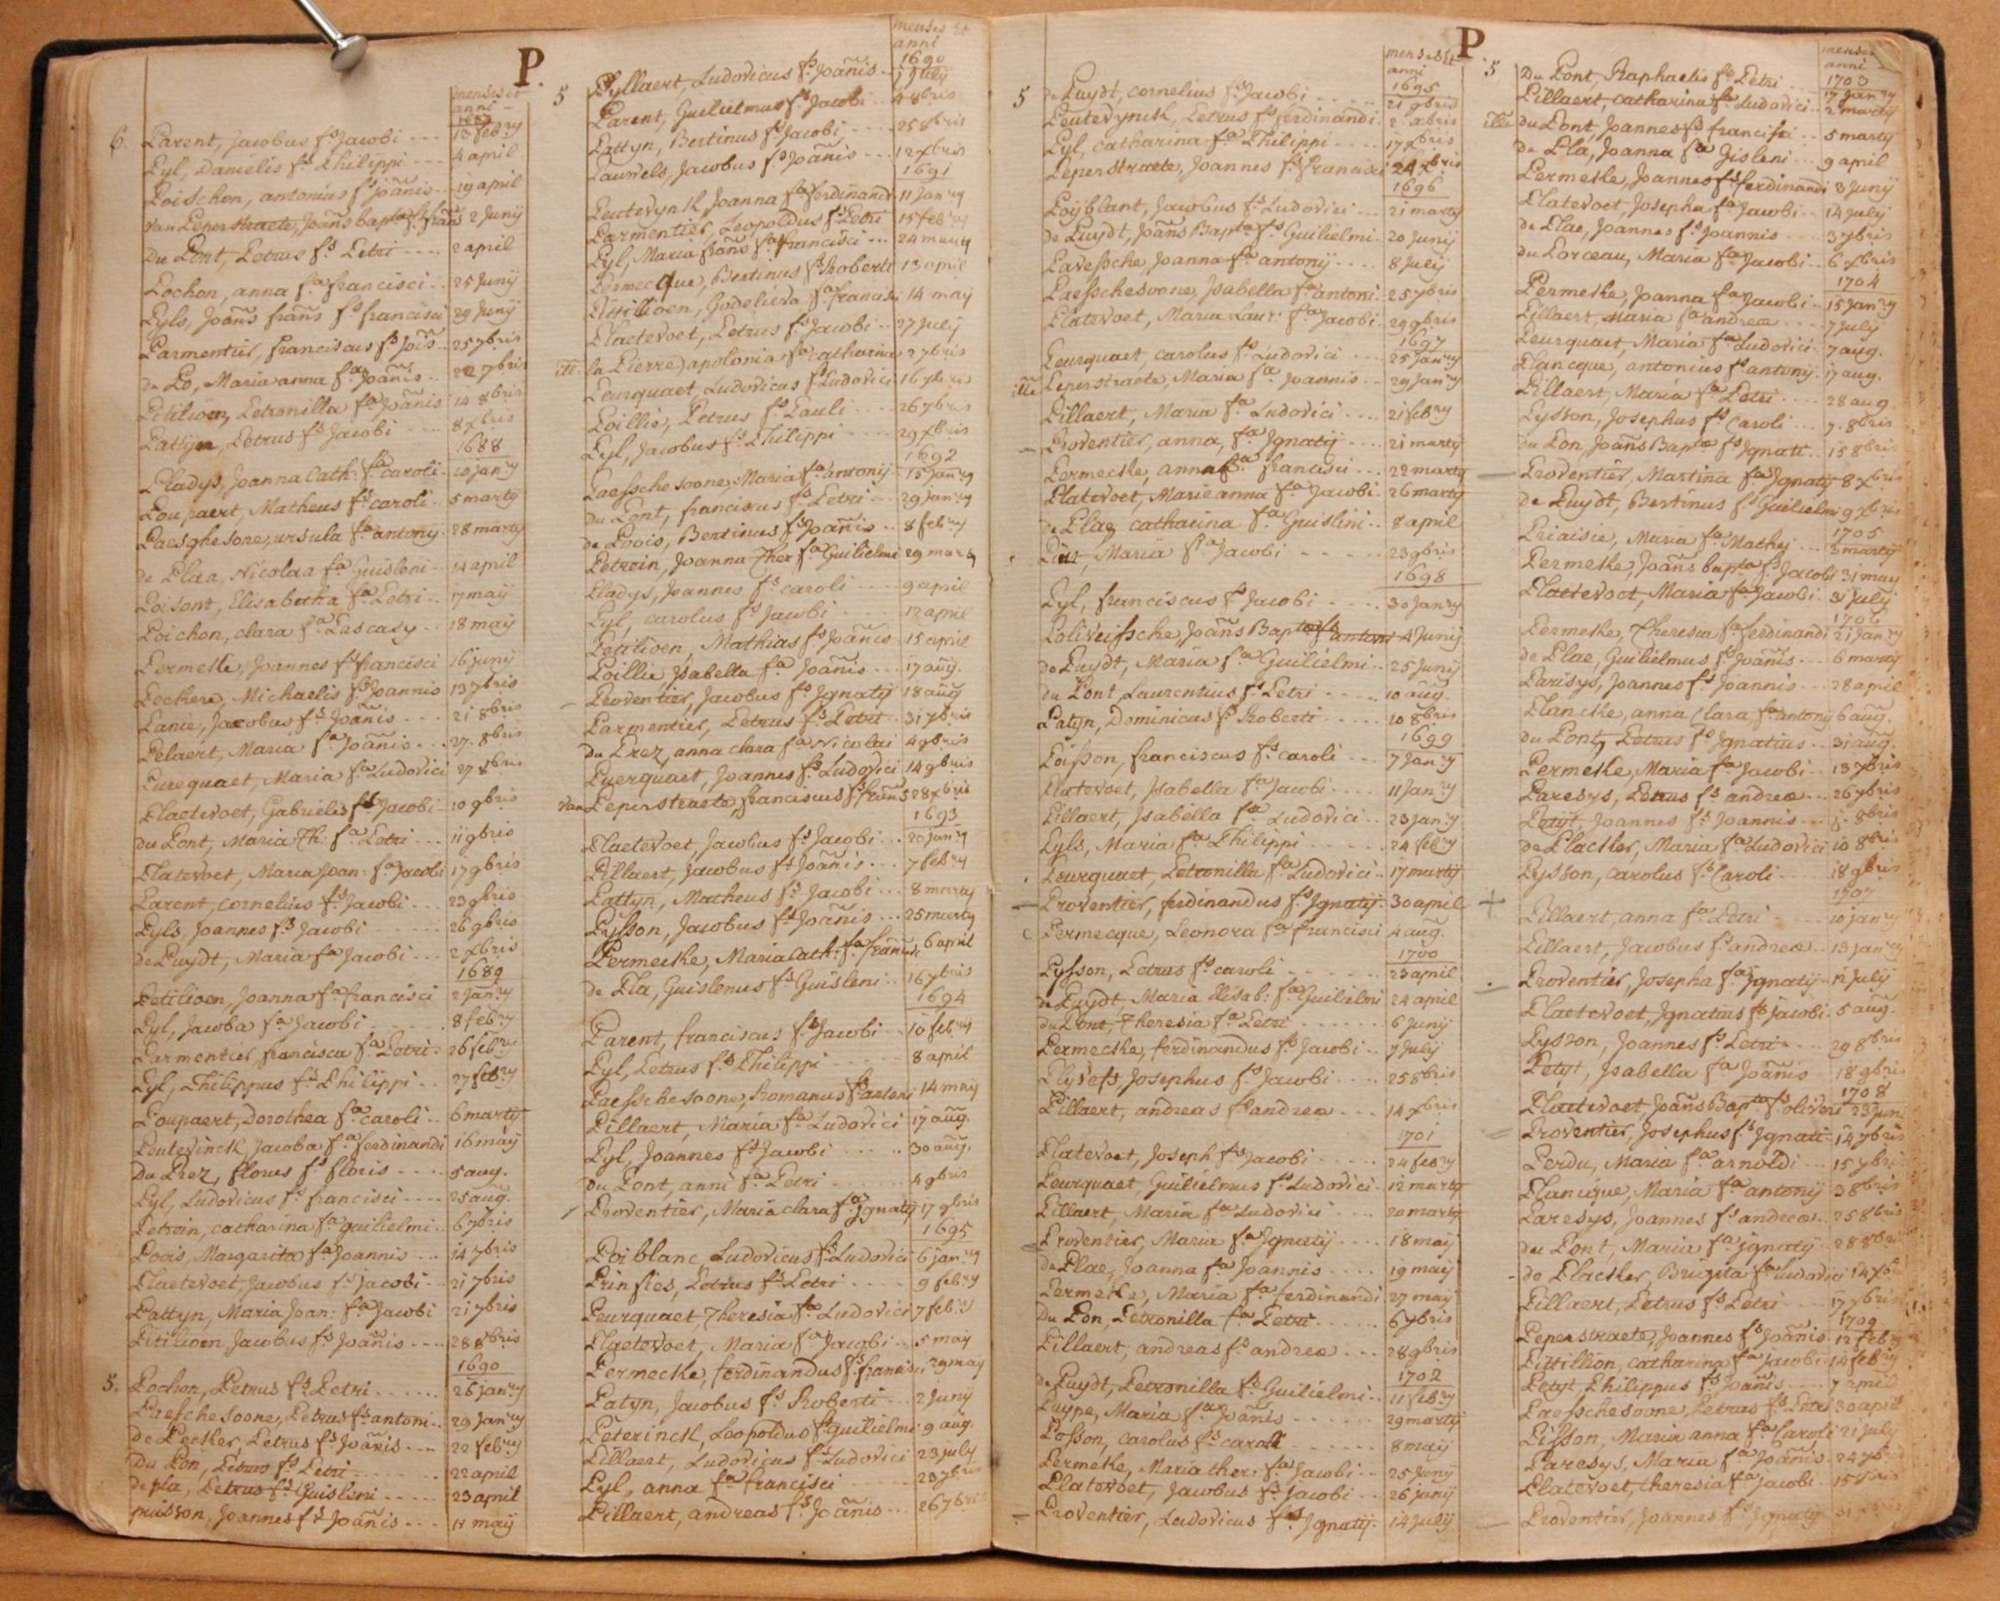 P.
menses et
anni
1687
6. Parent, Jacobus fs Jacobi --- 13 febry
Pyl, Danielis fs Philippi --- 4 april
Poischon, antonius fs joañis -- 19 april
van Peperstraete, Joañs bapta fs frañs 2 Junÿ
Du Pont, Petrus fs Petri ---- 2 april
Pochon, anna fa francisci -- 25 Junÿ
Pyls, Joañs frañs fs francisci 29 Junÿ
Parmentier, franciscus fs Jois -- 25 7bris
de Po, Maria anna fa Joañis -- 22 7bris
Petitioen, Petronilla fa Joañis 14 8bris
Pattyn, Petrus fs Jacobi --- 8 xbris
1688
Pladys, Joanna Cath: fa caroli -- 10 janry
Poupaert, Matheus fs caroli -- 5 marty
Paesghesone, ursula fa antony - 28 marty
de Plaa, Nicolaa fa Guisleni -- 14 april
Poisont, Elisabetha fa Petri -- 17 maÿ
Poichon, clara fa Pascasy -- 18 maÿ
Permeke, Joannes fs francisci 16 junÿ
Pochere, Michaelis fs Joannis 13 7bris
Pante, Jacobus fs Joañis --- 21 8bris
Pelaert, Maria fa Joañis --- 27 8bris
Purequaet, Maria fa Ludovici 27 8bris
Plaetevoet, Gabrielis fs Jacobi - 10 9bris
du Pont, Maria Th: fa Petri --- 11 9bris
Platevoet, Maria Joan: fa Jacobi 17 9bris
Parent, cornelius fs Jacobi --- 23 9bris
Pyls, Joannes fs Jacobi 26 9bris
de Puydt, Maria fa Jacobi --- 2 xbris
1689
Petitioen, Joanna fa francisci 2 Janry
Pyl, Jacoba fa Jacobi 8 febry
Parmentier, francisca fa Petri - 26 febry
Pyl, Philippus fs Philippi -- 27 febry
Poupaert, Dorothea fa caroli -- 6 marty
Peutevinck, Jacoba fa ferdinandi 16 maÿ
Du Prez, florus fs floris ---- 5 aug.
Pyl, Ludovicus fs francisci ---- 25 aug.
Petroin, catharina fa guilielmi -- 6 7bris
Poois, Margarita fa Joannis --- 14 7bris
Plaetevoet, Jacobus fs jacobi -- 21 7bris
Pattyn, Maria Joan: fa Jacobi 21 7bris
Pitilioen, Jacobus fs Joañis ---- 28 8bris
1690
5. Pochon, Petrus fs Petri ------ 26 janry
Preschesoone, Petrus fs antoni -- 29 Janry
de Pecker, Petrus fs Joañis --- 22 febry
Du Pon, Petrus fs Petri ----- 22 april
de pla, Petrus fs Guisleni ----- 23 april
puisson, Joannes fs Joañis --- 11 maÿ
menses et
anni
1690
5 Pyllaert, Ludovicus fs Joañis -- 1 July
Parent, Guilielmus fs Jacobi -- 4 8bris
Pattyn, Bertinus fs Jacobi ---- 25 8bris
Pauwels, Jacobus fs Joañis --- 12 xbris
1691
Peutevynck Joanna fa ferdinandi 11 Janry
Parmentier, Leopoldus fs Petri 15 febry
Pyl, Maria frañs fa francisci --- 24 marty
Permecque, Bertinus fs Roberti 13 april
Pittilioen, Godelieva fa francisci 14 maÿ
Plaetevoet, Petrus fs Jacobi -- 27 July
ill: la Pierre, apolonia fa catharina 2 7bris
Peurquaet, Ludovicus fs Ludovici 16 7bris
Poillie, Petrus fs Pauli ---- 26 7bris
Pyl, Jacobus fs Philippi ---- 29 xbris
1692
Paesschesoone, Maria fa antonij -- 15 Janry
du Pont, franciscus fs Petri --- 29 Janry
de Poois, Bertinus fs Joañis -- 8 febry
Petroin, Joanna Ther fa Guilielmi 29 marty
Pladys, Joannes fs caroli --- 9 april
Pyl, carolus fs Jacobi ---- 12 april
Petitioen, Mathias fs Joañis -- 15 april
Poillie Isabella fa Joañis --- 17 aug.
Proventier, Jacobus fs Ignatÿ 18 aug
Parmentier, Petrus fs Petri -- 31 7bris
du Prez, anna clara fa Nicolai 4 9bris
Puerquaet, Joannes fs Ludovici 14 9bris
van Peperstraete, franciscus fs frañs 28 xbris
1693
Plaetevoet, Jacobus fs Jacobi -- 20 janry
Pillaert, Jacobus fs Joañis --- 7 febry
Pattyn, Matheus fs Jacobi --- 8 marty
Pysson, Jacobus fs Joañis --- 25 marty
Permecke, Maria Cath: fa frañs 6 april
de Pla, Guislenus fs Guisleni -- 16 7bris
1694
Parent, franciscus fs Jacobi -- 10 febry
Pyl, Petrus fs Philippi ---- 8 april
Paesschesoone, Romanus fs antoni 14 maÿ
Pillaert, Maria fa Ludovici 17 aug.
Pyl, Joannes fs Jacobi ----- 30 aug.
du Pont, anni fa Petri ----- 4 9bris
Proventier, Maria clara fa Ignatÿ 17 9bris
1695
Poiblanc Ludovicus fs Ludovici 6 janry
Prinsies, Petrus fs Petri ---- 9 febry
Peurquaet Theresia fa Ludovici 7 febry
Plaetevoet, Maria fa Jacobi -- 5 maÿ
Permecke, ferdinandus fs francisci 29 maÿ
Patyn, Jacobus fs Roberti --- 2 Junÿ
Peterinck, Leopoldus fs guilielmi 9 aug.
Pillaert, Ludovicus fs Ludovici 23 july
Pyl, anna fa francisci ---- 23 7bris
Pillaert, andreas fs Joañis --- 26 7bris
P.
menses Et
anni
1695
5 de Puydt, cornelius fs Jacobi ---- 21 9bris
Peutevynck, Petrus fs ferdinandi - 2 xbris
Pyl, catharina fa Philippi ---- 17 xbris
Peperstraete, Joannes fs francisci 24 xbris
1696
Poÿblant, Jacobus fs Ludovici --- 21 marty
de Puydt, Joañs Bapta fs Guilielmi -- 20 Junÿ
Pavessche, Joanna fa antonÿ ---- 8 July
Paesschesoone, Isabella fa antoni - 25 7bris
Platevoet, Maria Laur: fa Jacobi - 29 9bris
1697
Peurquaet, carolus fs Ludovici --- 25 Janry
ille Peperstraete, Maria fa Joannis -- 29 Janry
Pillaert, Maria fa Ludovici ---- 21 febry
Proventier, anna, fa Ignatÿ ---- 21 marty
Permecke, anna fa francisci --- 22 marty
Platevoet, Marie anna fa Jacobi - 26 marty
de Plae, catharina fa Guislini -- 8 april
Maria fa Jacobi ----- 23 9bris
1698
Pyl, franciscus fs Jacobi ---- 30 Janry
Poliveissche, Joañs Bapta fs antoni 4 Junÿ
de Puydt, Maria fa Guilielmi --- 25 Junÿ
du Pont, Laurentius fs Petri ---- 10 aug.
Patyn, Dominicus fs Roberti ---- 10 8bris
1699
Poisson, franciscus fs caroli --- 7 Janry
Platevoet, Isabella fa Jacobi --- 11 Janry
Pillaert, Isabella fa Ludovici --- 23 Janry
Pyls, Maria fa Philippi ---- 24 febry
Peurquaet, Petronilla fa Ludovici -- 17 marty
Proventier, ferdinandus fs Ignatÿ - 30 april
Permecque, Leonora fa francisci 4 aug.
1700
Pysson, Petrus fs caroli ------ 23 april
de Puydt, Maria Elisab: fa Guilielmi 24 april
du Pont, Theresia fa Petri ------ 6 Junÿ
Permecke, ferdinandus fs Jacobi -- 7 July
Plyvess Josephus fs Jacobi ---- 25 8bris
Pillaert, andreas fs andreae --- 14 xbris
1701
Platevoet, Joseph fs Jacobi ----- 24 febry
Peurquaet, Guilielmus fs Ludovici - 12 marty
Pillaert, Maria fa Ludovici --- 20 marty
Proventier, Maria fa Ignatÿ --- 18 maÿ
de Plae, Joanna fa Joannis ---- 19 maÿ
Permeke, Maria fa ferdinandi 27 maÿ
Du Pon, Petronilla fa Petri ----- 6 7bris
Pillaert, andreas fs andreae --- 28 9bris
1702
de Puydt, Petronilla fa Guilielmi -- 11 febry
Puype, Maria fa Joañis ------ 29 marty
Posson, carolus fs caroli ------ 8 maÿ
Permeke, Maria ther: fa Jacobi -- 25 Junÿ
Platevoet, Jacobus fs Jacobi -- 26 junÿ
Proventier, Ludovicus fs Ignatÿ - 14 July
menses
anni
1703
5. Du Pont, Raphaelis fs Petri --- 17 Janry
Pillaert, catharina fa Ludovici -- 2 marty
ille du Pont, Joannes fs francisci -- 5 marty
de Pla, Joanna fa Gisleni --- 9 april
Permeke, Joannes fs ferdinandi 3 Junÿ
Platevoet, Josepha fa Jacobi -- 14 July
de Plae, Joannes fs Joannis ---- 3 7bris
du Porceau, Maria fa Jacobi -- 6 xbris
1704
Permeke, Joanna fa Jacobi -- 15 Janry
Pillaert, Maria fa andreae ---- 7 July
Peurquaet, Maria fa Ludovici -- 7 aug.
Plancque, antonius fs antony - 17 aug.
Pillaert, Maria fa Petri ---- 28 aug
Pysson, Josephus fs Caroli ---- 7 8bris
du Pon, Joañs Bapta fs Ignati -- 15 8bris
Proventier, Martina fa Ignatÿ 8 xbris
de Puydt, Bertinus fs Guilielmi 9 xbris
1705
Priaisie, Maria fa Mathei --- 3 marty
Permeke, Joañs bapta fs Jacobi 31 maÿ
Plaetevoet, Maria fa Jacobi 3 July
1706
Permeke, Theresia fa ferdinandi 21 Janry
de Plae, Guilielmus fs Joañis --- 6 marty
Parisys, Joannes fs Joannis --- 28 april
Plancke, anna Clara fa antony 6 aug.
du Pont, Petrus fs Ignatius -- 31 aug.
Permeke, Maria fa Jacobi -- 13 7bris
Paresys, Petrus fs andreae --- 26 7bris
Petyt, Joannes fs Joannis ---- 8bris
de Placker, Maria fa Ludovici 10 8bris
Pysson, carolus fs Caroli ---- 18 9bris
1707
Pillaert, anna fa Petri ---- 10 janry
Pillaert, Jacobus fs andreae -- 13 janry
Proventier, Josepha fa Ignatÿ - 12 July
Plaetevoet, Ignatius fs jacobi - 5 aug.
Pysson, Joannes fs Petri ---- 29 8bris
Petyt, Isabella fa Joañis 18 9bris
1708
Plaetevoet, Joañs Bapta fs oliverii 23 Junÿ
Proventier, Josephus fs Ignati - 14 7bris
Perdu, Maria fa arnoldi --- 15 7bris
Plancque, Maria fa antonij 3 8bris
Paresys, Joannes fs andreae -- 25 8bris
du Pont, Maria fa ignatÿ -- 28 8bris
de Placker, Brigita fa Ludovici 14
Pillaert, Petrus fs Petri --- 17 xbris
1709
Peperstraete, Joannes fs Joañis - 12 febry
Pittillion, catharina fa Jacobi - 14 febry
Petyt, Philippus fs Joañis --- 7 april
Paesschesoone, Petrus fs Petri 30 april
Pisson, Maria anna fa Caroli 21 July
Paresys, Maria fa Joañis -- 24 7bris
Platevoet, theresia fa Jacobi - 15
Proventier, Joannes fs Ignatÿ 31